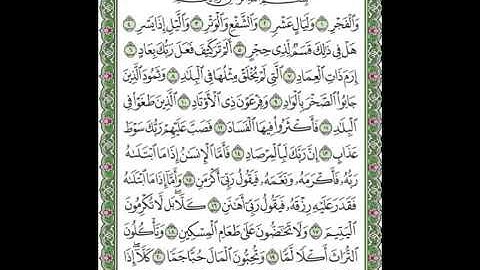 وَٱلْفَجْرِ ١ وَلَيَالٍ عَشْرٍ ٢ وَٱلشَّفْعِ وَٱلْوَتْرِ ٣ وَٱلَّيْلِ إِذَا يَسْرِ ٤
هَلْ فِى ذَٰلِكَ قَسَمٌ لِّذِى حِجْرٍ ٥ أَلَمْ تَرَ كَيْفَ فَعَلَ رَبُّكَ بِعَادٍ ٦
إِرَمَ ذَاتِ ٱلْعِمَادِ ٧ ٱلَّتِى لَمْ يُخْلَقْ مِثْلُهَا فِى ٱلْبِلَٰدِ ٨ وَثَمُودَ ٱلَّذِينَ
جَابُوا۟ ٱلصَّخْرَ بِٱلْوَادِ ٩ وَفِرْعَوْنَ ذِى ٱلْأَوْتَادِ ١٠ ٱلَّذِينَ طَغَوْا۟ فِى
ٱلْبِلَٰدِ ١١ فَأَكْثَرُوا۟ فِيهَا ٱلْفَسَادَ ١٢ فَصَبَّ عَلَيْهِمْ رَبُّكَ سَوْطَ
عَذَابٍ ١٣ إِنَّ رَبَّكَ لَبِٱلْمِرْصَادِ ١٤ فَأَمَّا ٱلْإِنسَٰنُ إِذَا مَا ٱبْتَلَىٰهُ
رَبُّهُۥ فَأَكْرَمَهُۥ وَنَعَّمَهُۥ فَيَقُولُ رَبِّىٓ أَكْرَمَنِ ١٥ وَأَمَّآ إِذَا مَا ٱبْتَلَىٰهُ
فَقَدَرَ عَلَيْهِ رِزْقَهُۥ فَيَقُولُ رَبِّىٓ أَهَٰنَنِ ١٦ كَلَّا ۖ بَل لَّا تُكْرِمُونَ
ٱلْيَتِيمَ ١٧ وَلَا تَحَٰٓضُّونَ عَلَىٰ طَعَامِ ٱلْمِسْكِينِ ١٨ وَتَأْكُلُونَ
ٱلتُّرَاثَ أَكْلًا لَّمًّا ١٩ وَتُحِبُّونَ ٱلْمَالَ حُبًّا جَمًّا ٢٠ كَلَّآ إِذَا